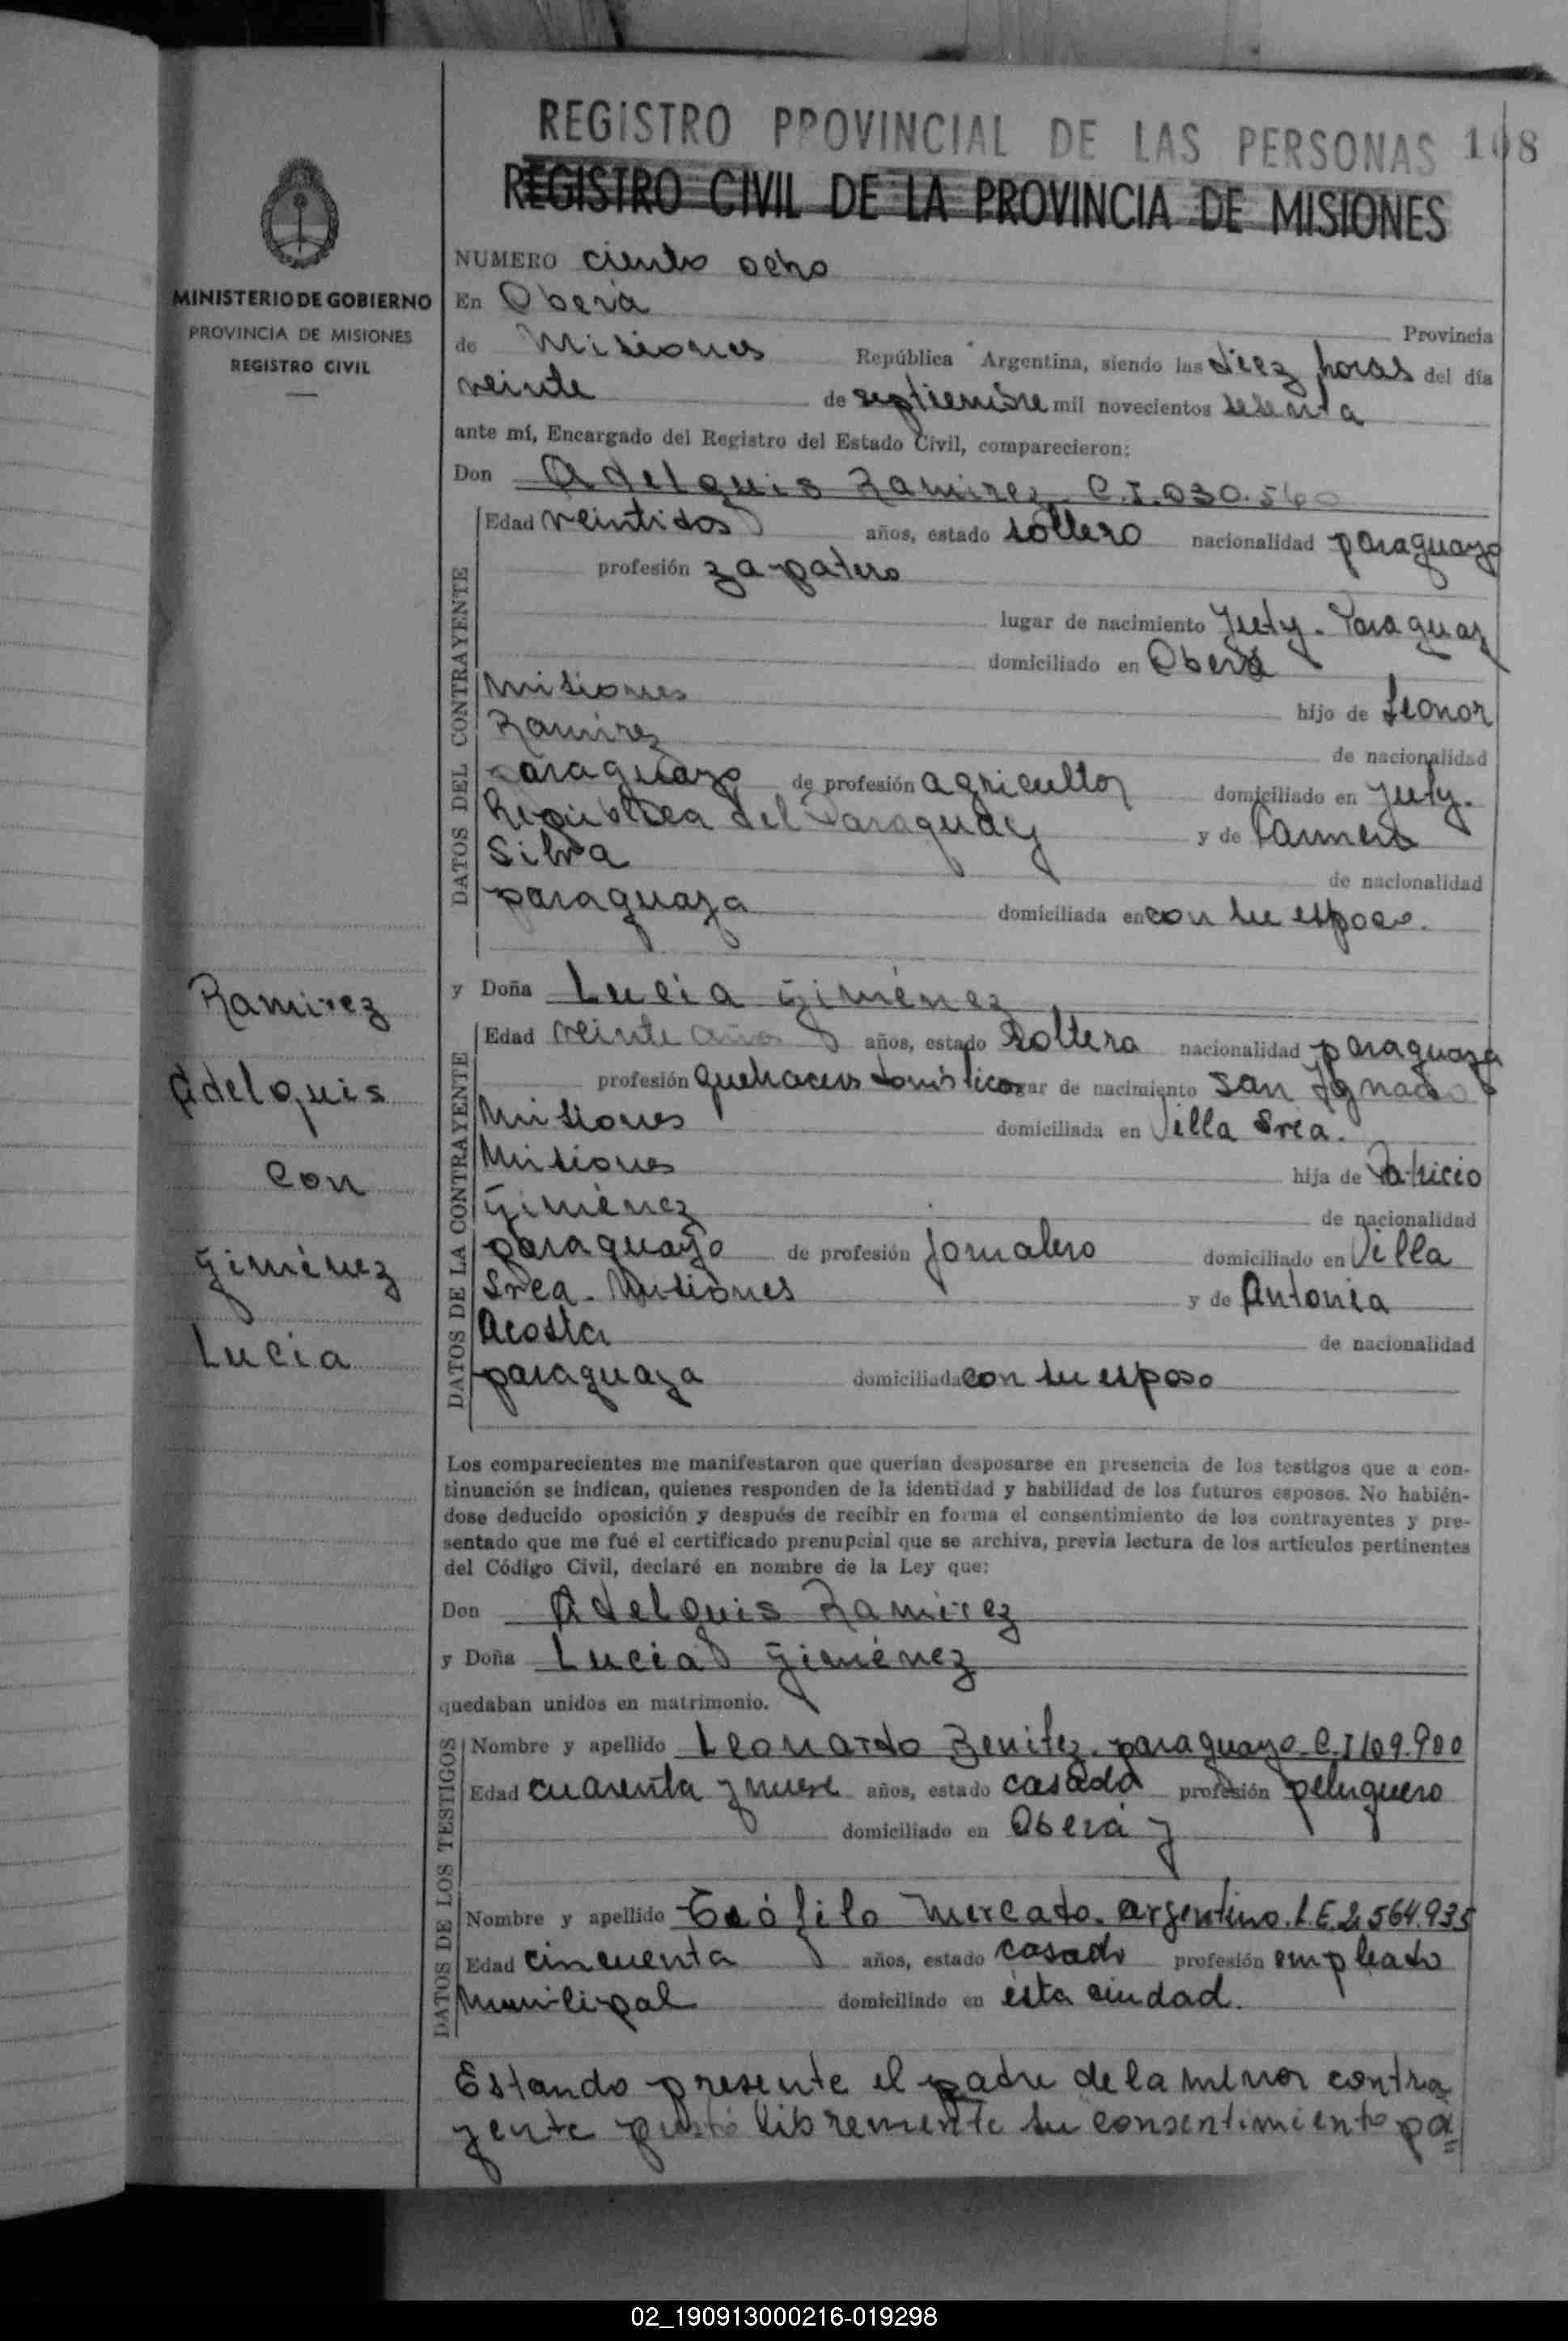 REGISTRO PROVINCIAL DE LAS PERSONAS 108
REGISTRO CIVIL DE LA PROVINCIA DE MISIONES
MINISTERIO DE GOBIERNO
PROVINCIA DE MISIONES
REGISTRO CIVIL
NUMERO ciento ocho
En Oberá
Provincia
de Misiones República Argentina, siendo las diez horas del día
veinte de septiembre mil novecientos sesenta
ante mí, Encargado del Registro del Estado Civil, comparecieron:
Don Adelquis Ramirez C.I.030.560
DATOS DEL CONTRAYENTE
Edad veintidos años, estado soltero nacionalidad paraguayo
profesión zapatero
lugar de nacimiento Yuty. Paraguay
domiciliado en Oberá
Misiones hijo de Leonor
Ramirez de nacionalidad
paraguayo de profesión agricultor domiciliado en Yuty.
República del Paraguay y de Carmen
Silva de nacionalidad
paraguaya domiciliada en con su esposo.
y Doña Lucia Giménez
DATOS DE LA CONTRAYENTE
Edad veinte años años, estado soltera nacionalidad paraguaya
profesión quehaceres domésticos lugar de nacimiento San Ignacio
Misiones domiciliada en Villa Srea.
Misiones hija de Patricio
Giménez de nacionalidad
paraguayo de profesión Jornalero domiciliado en Villa
Srea. Misiones y de Antonia
Acosta de nacionalidad
paraguaya domiciliada con su esposo
Ramirez
Adelquis
con
Giménez
Lucia
Los comparecientes me manifestaron que querían desposarse en presencia de los testigos que a con-
tinuación se indican, quienes responden de la identidad y habilidad de los futuros esposos. No habién-
dose deducido oposición y después de recibir en forma el consentimiento de los contrayentes y pre-
sentado que me fué el certificado prenupcial que se archiva, previa lectura de los artículos pertinentes
del Código Civil, declaré en nombre de la Ley que:
Don Adelquis Ramirez
y Doña Lucia Giménez
quedaban unidos en matrimonio.
DATOS DE LOS TESTIGOS
Nombre y apellido Leonardo Benitez. paraguayo. C.I 109.900
Edad cuarenta y nueve años, estado casado profesión peluquero
domiciliado en Oberá y
Nombre y apellido Teófilo Mercado. argentino. L.E.2.564.935
Edad cincuenta años, estado casado profesión empleado
Municipal domiciliado en esta ciudad.
Estando presente el padre de la menor contra
yente prestó libremente su consentimiento pa=
02_190913000216-019298